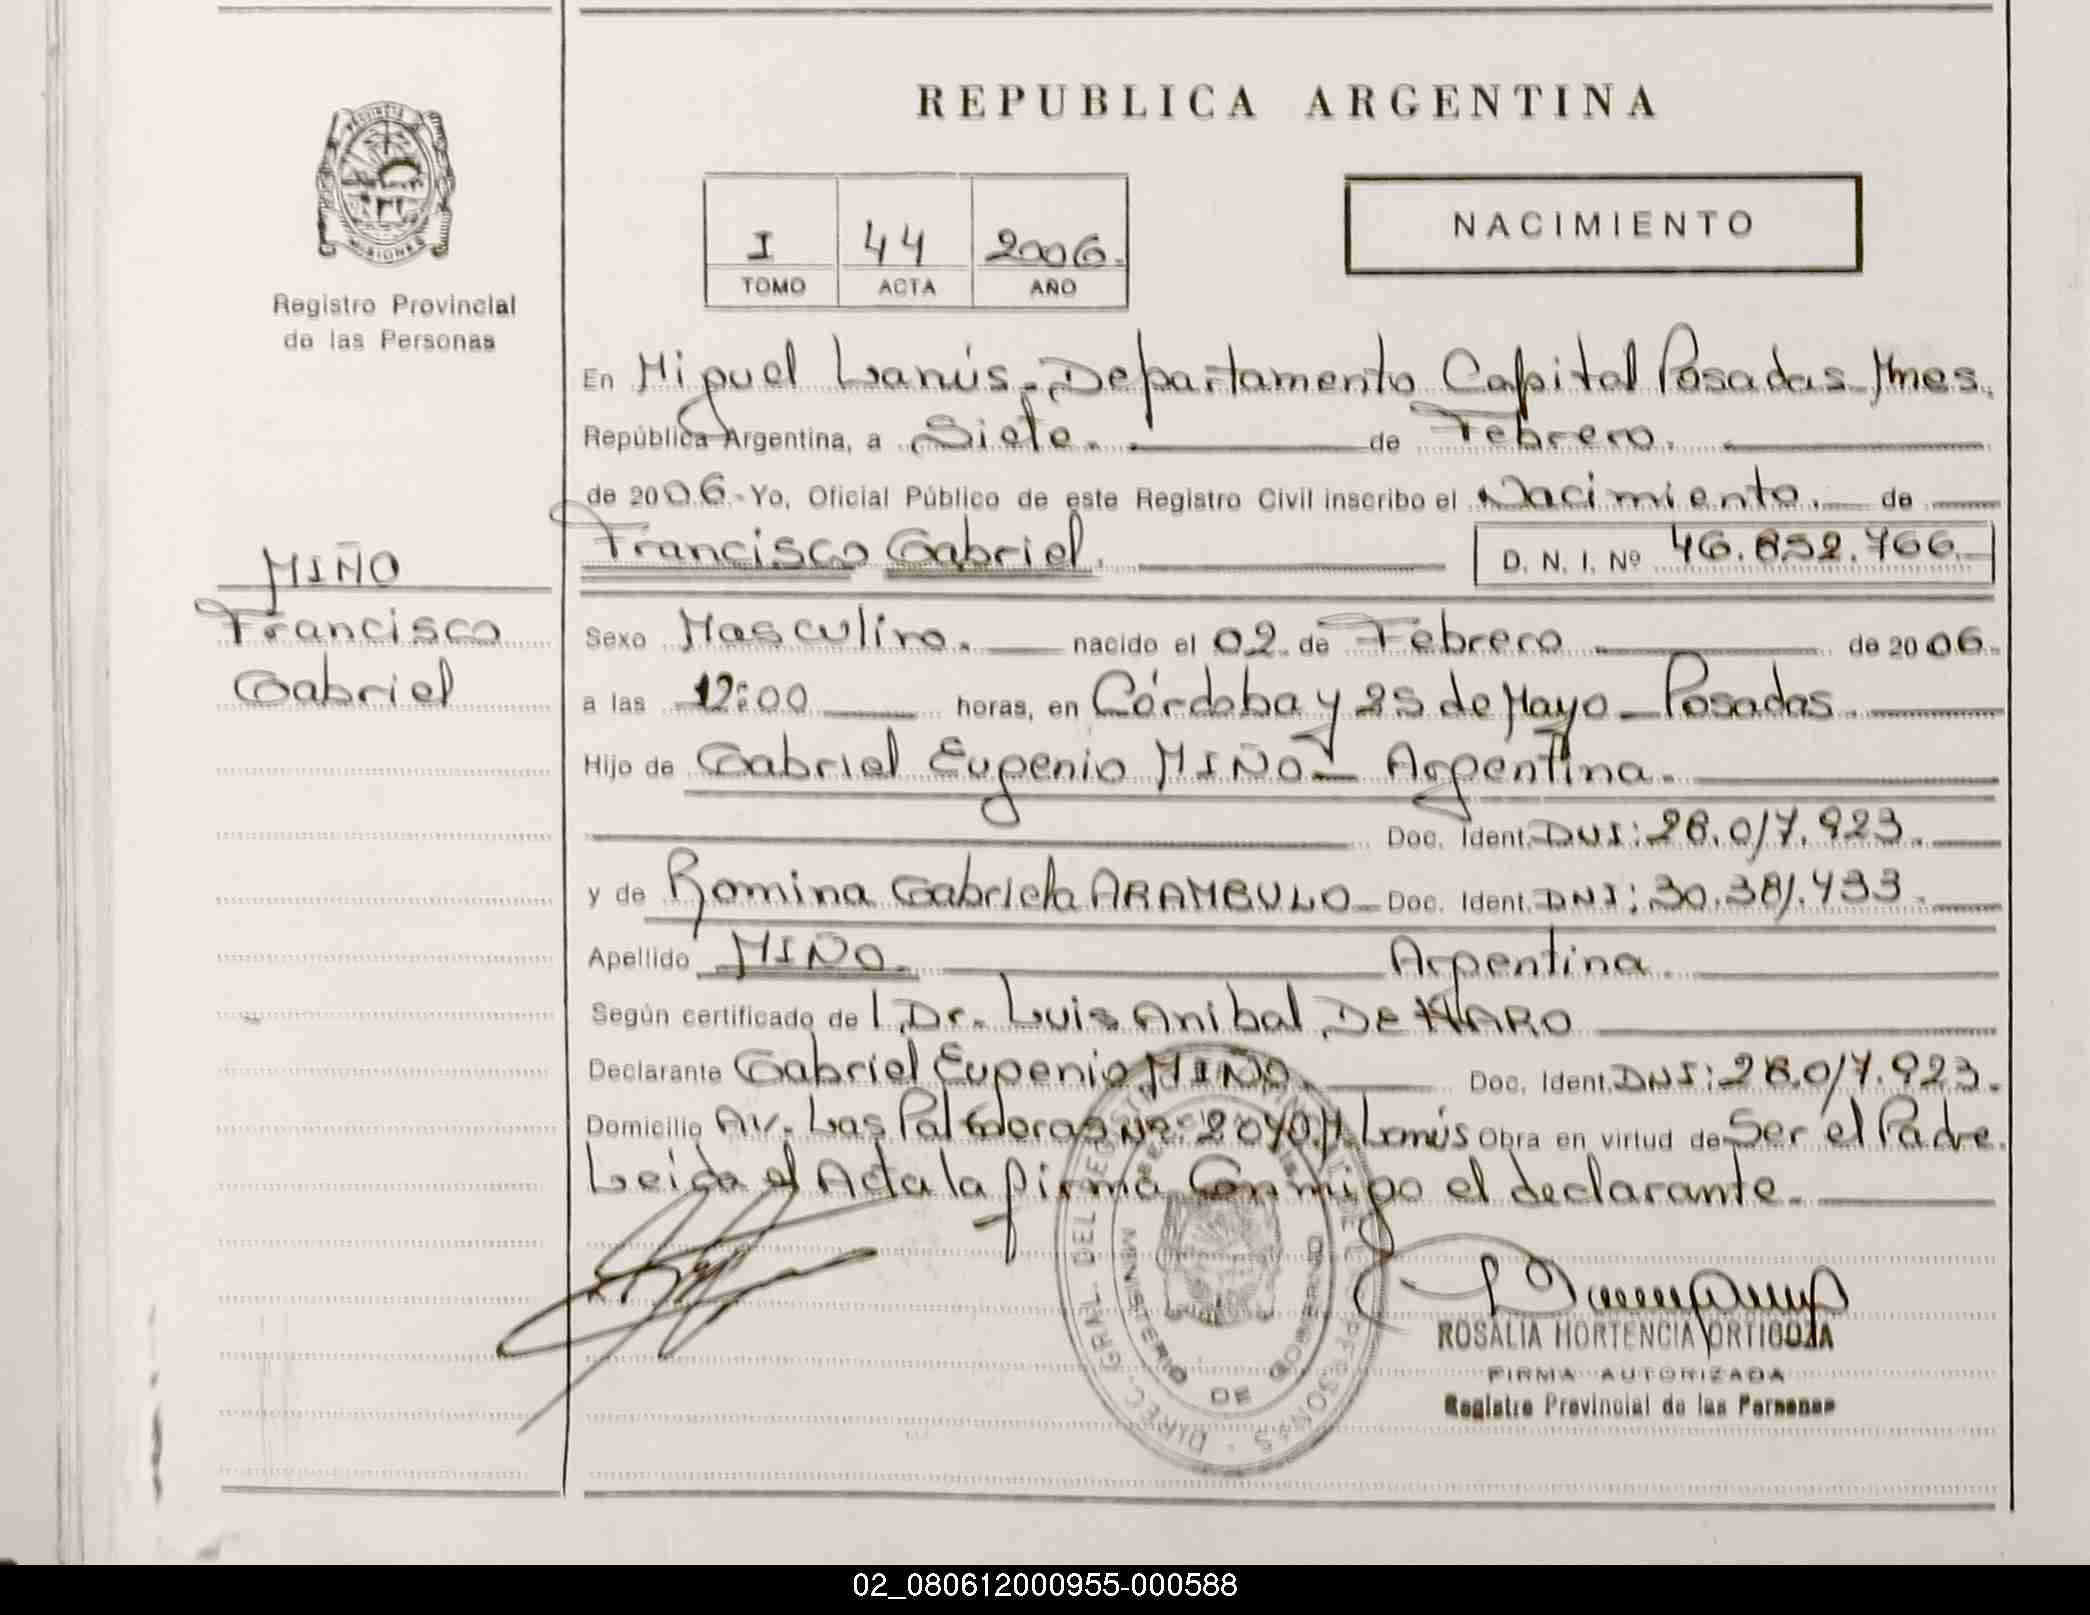 REPUBLICA ARGENTINA
NACIMIENTO
I 44 2006.
TOMO ACTA AÑO
PROVINCIA
MISIONES
Registro Provincial
de las Personas
MIÑO
Francisco
Gabriel
En Miguel Lanús - Departamento Capital Posadas - Mnes.
República Argentina, a Siete. de Febrero.
de 2006.- Yo, Oficial Público de este Registro Civil inscribo el Nacimiento. de
Francisco Gabriel. D. N. I. Nº 46.852.766
Sexo Masculino. nacido el 02 de Febrero de 2006.
a las 12:00 horas, en Córdoba y 25 de Mayo - Posadas.
Hijo de Gabriel Eugenio MIÑO - Argentina.
Doc. Ident. DNI: 28.017.923.
y de Romina Gabriela ARAMBULO - Doc. Ident. DNI: 30.381.433.
Apellido MIÑO. Argentina.
Según certificado de l Dr. Luis Anibal DE HARO
Declarante Gabriel Eugenio MIÑO. Doc. Ident. DNI: 28.017.923.
Domicilio Av. Las Nº 2040. M. Lanús Obra en virtud de Ser el Padre.
Leida el Acta la firma Conmigo el declarante.
DIREC. GRAL. DEL PERSONAS
MINISTERIO DE GOBIERNO
ROSALIA HORTENCIA ORTIGOZA
FIRMA AUTORIZADA
Registro Provincial de las Personas
02_080612000955-000588